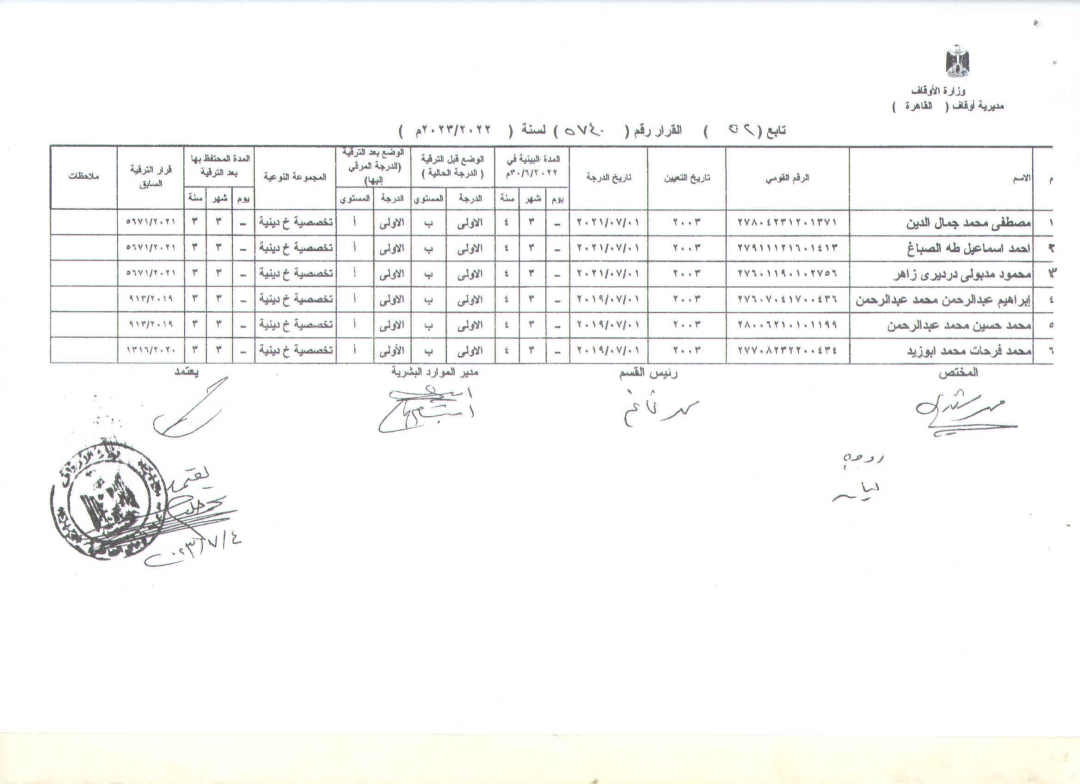 وزارة الأوقاف
مديرية أوقاف ( القاهرة )
تابع ( ٥٢ ) القرار رقم ( ٥٧٤٠ ) لسنة ( ٢٠٢٣/٢٠٢٢م )
م الاسم الرقم القومي تاريخ التعيين تاريخ الدرجة المدة البينية في ٢٠٢٢/٦/٣٠م الوضع قبل الترقية ( الدرجة الحالية ) الوضع بعد الترقية (الدرجة المرقي إليها) المجموعة النوعية المدة المحتفظ بها بعد الترقية قرار الترقية السابق ملاحظات
يوم شهر سنة الدرجة المستوي الدرجة المستوي يوم شهر سنة
١ مصطفى محمد جمال الدين ٢٧٨٠٤٢٣١٢٠١٣٧١ ٢٠٠٣ ٢٠٢١/٠٧/٠١ _ ٣ ٤ الاولى ب الاولى أ تخصصية خ دينية _ ٣ ٣ ٥٦٧١/٢٠٢١
٢ احمد اسماعيل طه الصباغ ٢٧٩١١١٢١٦٠١٤١٣ ٢٠٠٣ ٢٠٢١/٠٧/٠١ _ ٣ ٤ الاولى ب الاولى أ تخصصية خ دينية _ ٣ ٣ ٥٦٧١/٢٠٢١
٣ محمود مدبولى درديرى زاهر ٢٧٦٠١١٩٠١٠٢٧٥٦ ٢٠٠٣ ٢٠٢١/٠٧/٠١ _ ٣ ٤ الاولى ب الاولى أ تخصصية خ دينية _ ٣ ٣ ٥٦٧١/٢٠٢١
٤ إبراهيم عبدالرحمن محمد عبدالرحمن ٢٧٦٠٧٠٤١٧٠٠٤٣٦ ٢٠٠٣ ٢٠١٩/٠٧/٠١ _ ٣ ٤ الاولى ب الاولى أ تخصصية خ دينية _ ٣ ٣ ٩١٣/٢٠١٩
٥ محمد حسين محمد عبدالرحمن ٢٨٠٠٦٢١٠١٠١١٩٩ ٢٠٠٣ ٢٠١٩/٠٧/٠١ _ ٣ ٤ الاولى ب الاولى أ تخصصية خ دينية _ ٣ ٣ ٩١٣/٢٠١٩
٦ محمد فرحات محمد ابوزيد ٢٧٧٠٨٢٣٢٢٠٠٤٣٤ ٢٠٠٣ ٢٠١٩/٠٧/٠١ _ ٣ ٤ الاولى ب الأولى أ تخصصية خ دينية _ ٣ ٣ ١٣١٦/٢٠٢٠
المختص رئيس القسم مدير الموارد البشرية يعتمد
يعتمد
٢٠٢٣/٧/٤